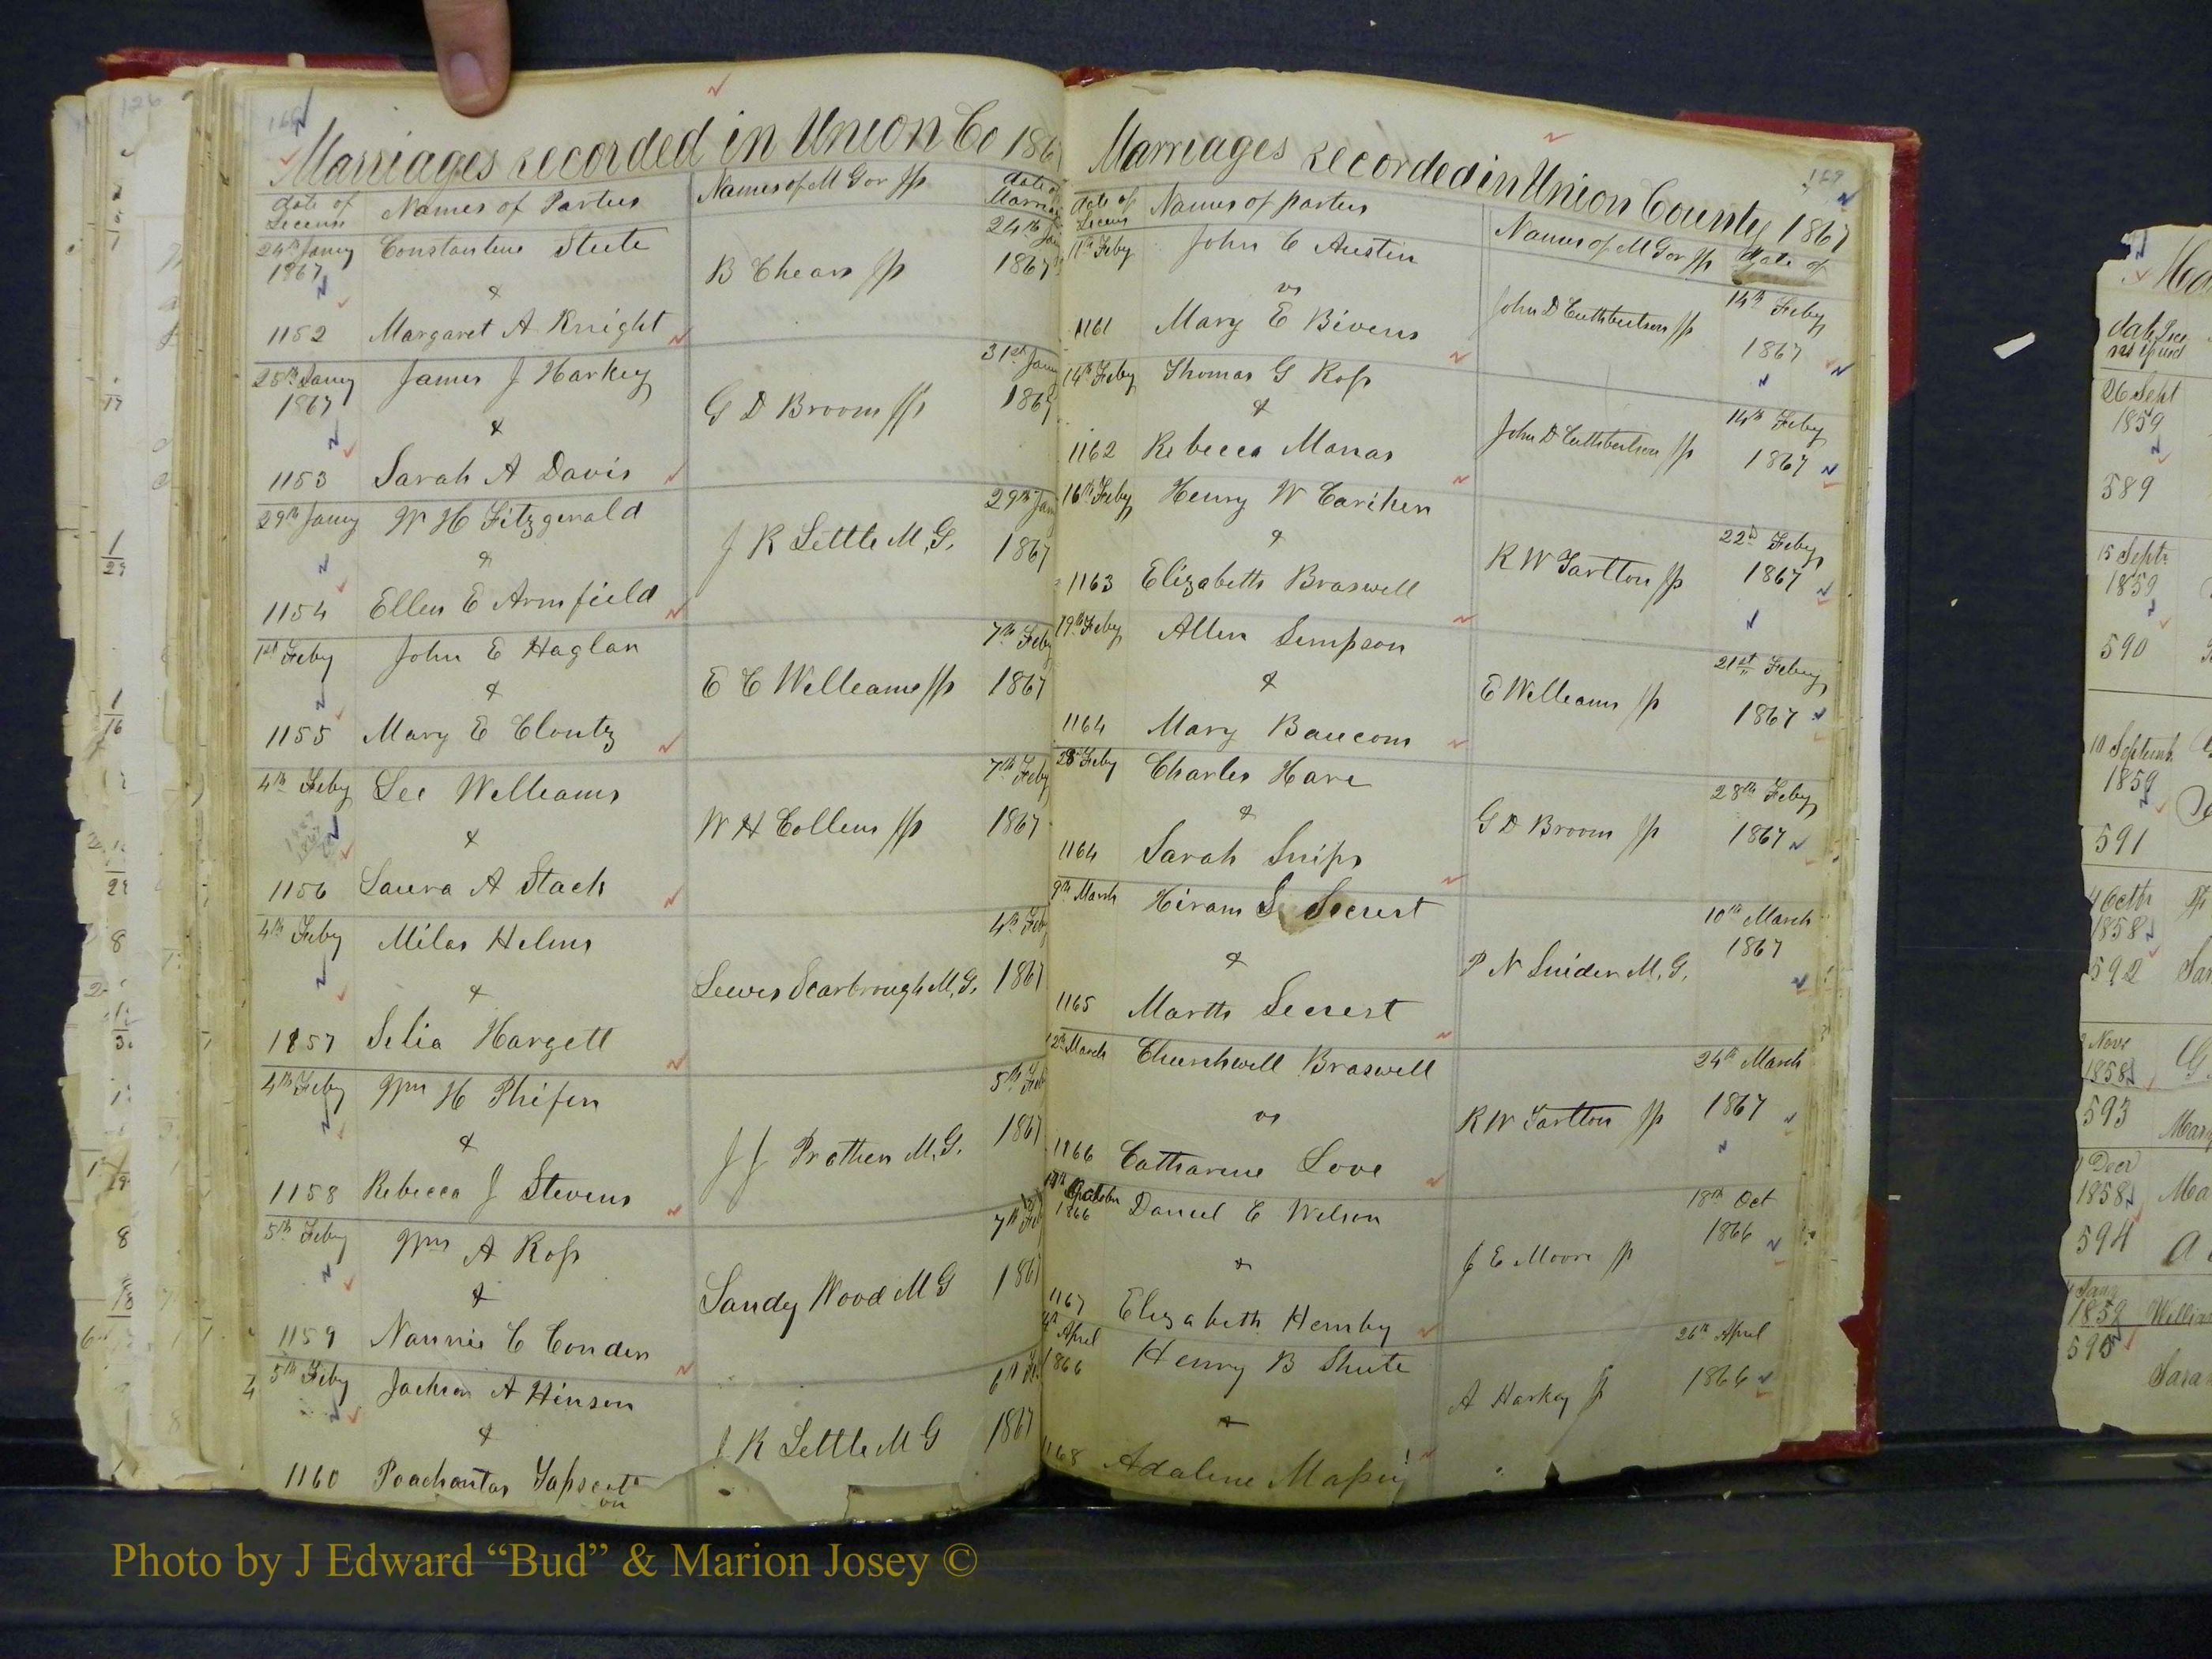 Marriages recorded in Union Co 186
date of License
Names of Parties
Names of M G or JP
date of Marria
24th Jany 1867
Constantine Stute
&
1152 Margaret A Knight
B Chears JP
24th Ja 1867
25th Jany 1867
James J Harkey
&
1153 Sarah A Davis
G D Broom JP
31st Jany 1867
29th Jany
W H Fitzgerald
&
1154 Ellen E Armfield
J R Settle M.G.
29th Jan 1867
1st Feby
John E Haglar
&
1155 Mary E Cloutz
E C Williams JP
7th Feby 1867
4th Feby
Lee Williams
&
1156 Laura A Stack
W H Collins JP
7th Feby 1867
4th Feby
Milas Helms
&
1157 Selia Hargett
Lewis Scarbrough M.G.
4th Feb 1867
4th Feby
Wm H Phifer
&
1158 Rebecca J Stevens
J J Prather M.G.
5th Feb 1867
5th Feby
Wm A Ross
&
1159 Nannie C Conder
Sandy Wood M G
7th Feb 1867
5th Feby
Jackson A Hinson
&
1160 Poachantas
J R Settle M G
6th 1867
Marriages recorded in Union County 1867
169
date of License
Names of parties
Names of M G or JP
Date of
11th Feby
John C Austin
vs
1161 Mary E Bivens
John D Cuthbertson JP
14th Feby 1867
14th Feby
Thomas G Ross
&
1162 Rebecca Manas
John D Cuthbertson JP
14th Feby 1867
16th Feby
Henry W Cariker
&
1163 Elizabeth Braswell
R W Tarlton JP
22d Feby 1867
19th Feby
Allen Simpson
&
1164 Mary Baucom
E Williams JP
21st Feby 1867
28 Feby
Charles Hare
&
1164 Sarah Snips
G D Broom JP
28th Feby 1867
9th March
Hiram S Secrest
&
1165 Martha Secrest
P N Snider M.G.
10th March 1867
12th March
Churchwell Braswell
vs
1166 Catharine Love
R W Tarlton JP
24th March 1867
October 1866
Daniel C Wilson
&
1167 Elizabeth Hemby
J E Moore JP
18th Oct 1866
April 1866
Henry B Shute
&
1168 Adaline Massey
A Harkey JP
26th April 1866
26 Sept 1859
589
15 Septr 1859
590
10 Septemb 1859
591
4 Octr 1858
592
Nove 1858
593
Decr 1858
594
1859
595
Sara
Photo by J Edward “Bud” & Marion Josey ©